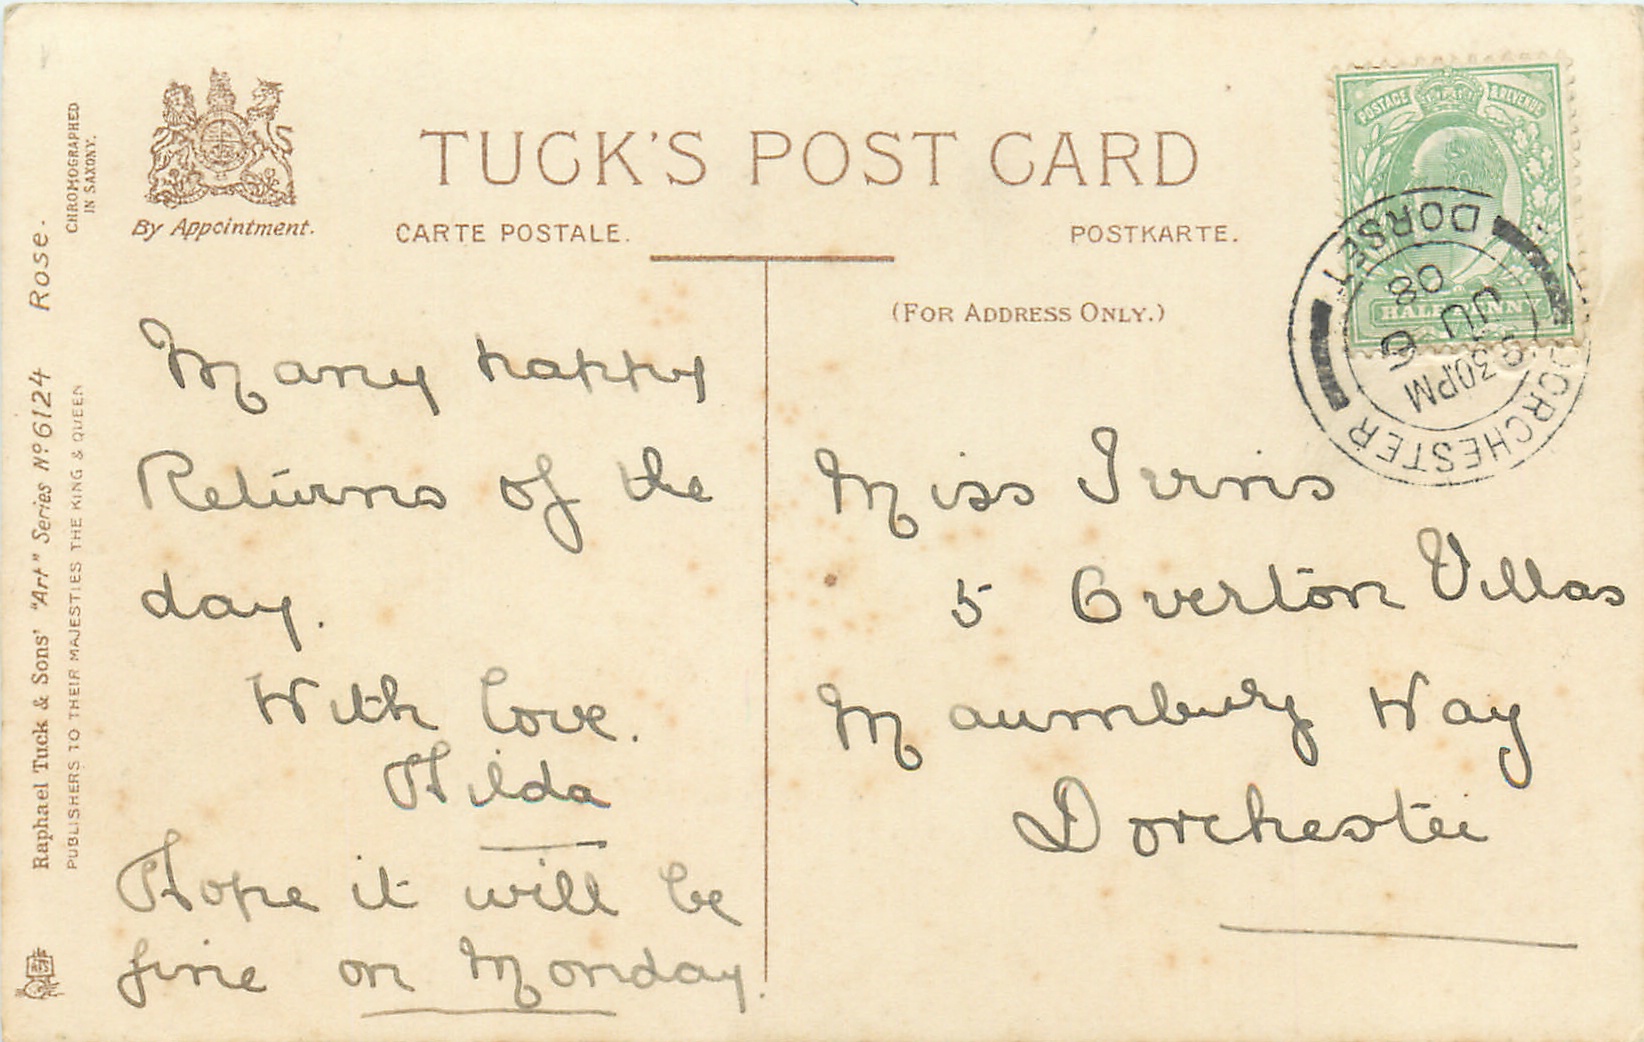 TUCK'S POST CARD
By Appointment.
CARTE POSTALE.
POSTKARTE.
(FOR ADDRESS ONLY.)
CHROMOGRAPHED
IN SAXONY.
Raphael Tuck & Sons' "Art" Series Nº 6124 Rose.
PUBLISHERS TO THEIR MAJESTIES THE KING & QUEEN
POSTAGE & REVENUE
HALFPENNY
DORCHESTER
8.30PM
JU 6
08
DORSET
Many happy
Returns of the
day.
With love.
Hilda
Hope it will be
fine on Monday.
Miss
5 Overton Villas
Maumbury Way
Dorchester